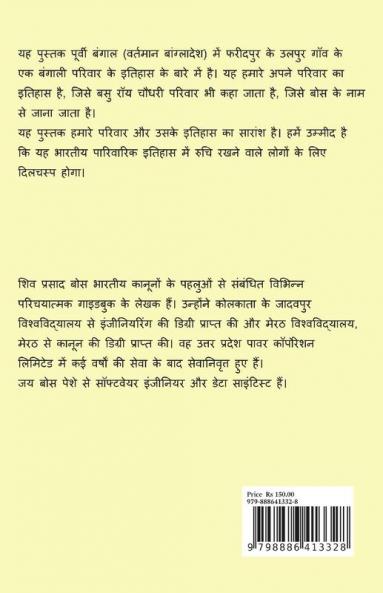 यह पुस्तक पूर्वी बंगाल (वर्तमान बांग्लादेश) में फरीदपुर के उलपुर गाँव के
एक बंगाली परिवार के इतिहास के बारे में है। यह हमारे अपने परिवार का
इतिहास है, जिसे बसु रॉय चौधरी परिवार भी कहा जाता है, जिसे बोस के नाम
से जाना जाता है।
यह पुस्तक हमारे परिवार और उसके इतिहास का सारांश है। हमें उम्मीद है
कि यह भारतीय पारिवारिक इतिहास में रुचि रखने वाले लोगों के लिए
दिलचस्प होगा।
शिव प्रसाद बोस भारतीय कानूनों के पहलुओं से संबंधित विभिन्न
परिचयात्मक गाइडबुक के लेखक हैं। उन्होंने कोलकाता के जादवपुर
विश्वविद्यालय से इंजीनियरिंग की डिग्री प्राप्त की और मेरठ विश्वविद्यालय,
मेरठ से कानून की डिग्री प्राप्त की। वह उत्तर प्रदेश पावर कॉर्पोरेशन
लिमिटेड में कई वर्षों की सेवा के बाद सेवानिवृत्त हुए हैं।
जय बोस पेशे से सॉफ्टवेयर इंजीनियर और डेटा साइंटिस्ट हैं।
Price Rs 150.00
979-888641332-8
9 798886 413328